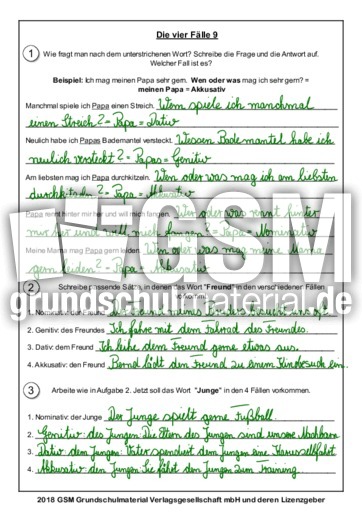 Die vier Fälle 9
1 Wie fragt man nach dem unterstrichenen Wort? Schreibe die Frage und die Antwort auf.
Welcher Fall ist es?
Beispiel: Ich mag meinen Papa sehr gern. Wen oder was mag ich sehr gern? =
meinen Papa = Akkusativ
Manchmal spiele ich Papa einen Streich. Wem spiele ich manchmal
einen Streich? = Papa = Dativ
Neulich habe ich Papas Bademantel versteckt. Wessen Bademantel habe ich
neulich versteckt? = Papas = Genitiv
Am liebsten mag ich Papa durchkitzeln. Wen oder was mag ich am liebsten
durchkitzeln? = Papa = Akkusativ
Papa rennt hinter mir her und will mich fangen. Wer oder was rennt hinter
mir her und will mich fangen? = Papa = Nominativ
Meine Mama mag Papa gern leiden. Wen oder was mag meine Mama
gern leiden? = Papa = Akkusativ
GSM
grundschulmaterial.de
2 Schreibe passende Sätze, in denen das Wort "Freund" in den verschiedenen Fällen
vorkommt.
1. Nominativ: der Freund
2. Genitiv: des Freundes Ich fahre mit dem Fahrrad des Freundes.
3. Dativ: dem Freund Ich leihe dem Freund gerne etwas aus.
4. Akkusativ: den Freund Bernd lädt den Freund zu einem Kinobesuch ein.
3 Arbeite wie in Aufgabe 2. Jetzt soll das Wort "Junge" in den 4 Fällen vorkommen.
1. Nominativ: der Junge Der Junge spielt gerne Fußball.
2. Genitiv: des Jungen: Die Eltern des Jungen sind unsere Nachbarn.
3. Dativ: dem Jungen: Vater spendiert dem Jungen eine Karussellfahrt.
4. Akkusativ: den Jungen: Sie fährt den Jungen zum Training.
2018 GSM Grundschulmaterial Verlagsgesellschaft mbH und deren Lizenzgeber